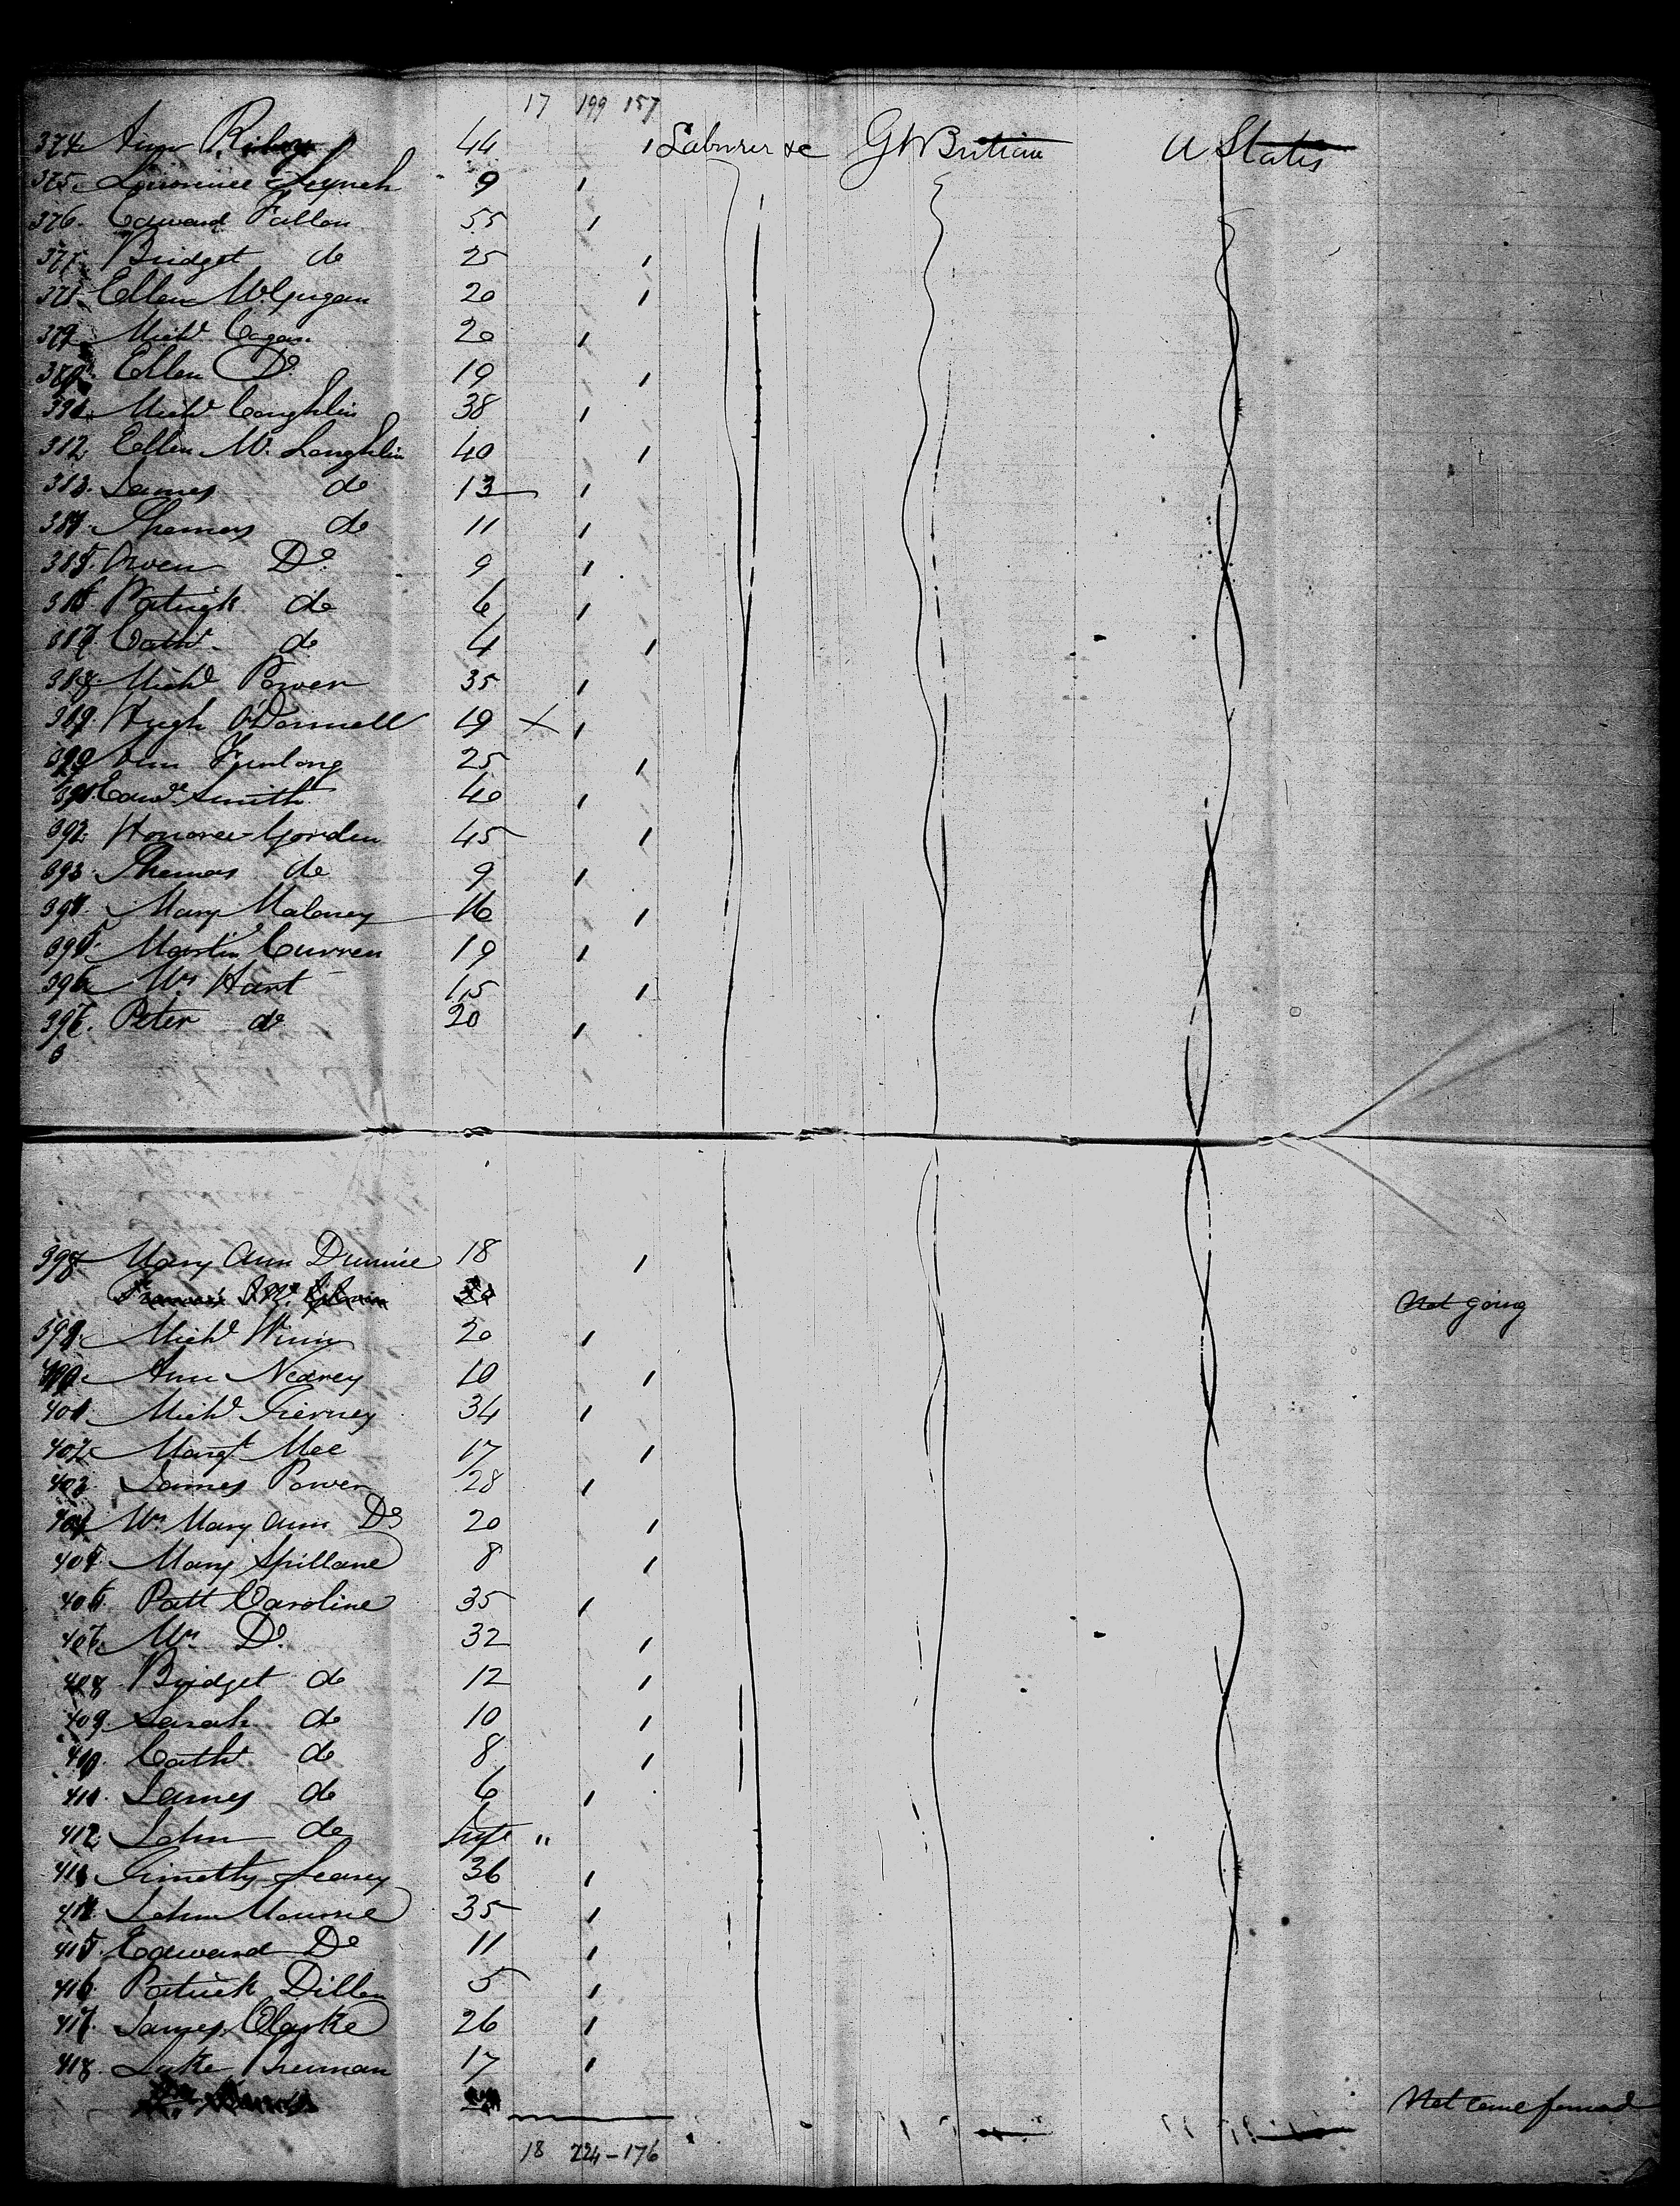 17 199 157
374 Ann Riley 44 1 Laborer &c Gt Britian U States
375 Lawrence Lynch 9 1
376 Edward Fallon 55 1
377 Bridget do 25 1
378 Ellen 20 1
379 Michl Eagan 20 1
380 Ellen Do 19 1
381 Michl Coughlin 38 1
382 Ellen Mc Loughlin 40 1
383 James do 13 1
384 Thomas do 11 1
385 Owen Do 9 1
386 Patrick do 6 1
387 Cath do 4 1
388 Michl Power 35 1
389 Hugh O'Donnell 19 X 1
390 Ann Furlong 25 1
391 Edwd Smith 40 1
392 Honora Gorden 45 1
393 Thomas do 9 1
394 Mary Maloney 16 1
395 Martin Curren 19 1
396 Mrs Hart 45 1
397 Peter do 20 1
398 Mary Ann Dunnie 18 1
Not going
399 Michl 20 1
400 Ann Nearey 10 1
401 Michl Tierney 34 1
402 Margt Mee 17 1
403 James Power 28 1
404 Mrs Mary Ann Do 20 1
405 Mary Spillane 8 1
406 Patt Caroline 35 1
407 Mrs Do 32 1
408 Bridget do 12 1
409 Sarah do 10 1
410 Cath do 8 1
411 James do 6 1
412 John do Inft "
413 Timothy Leary 36 1
414 John 35 1
415 Edward Do 11 1
416 Patrick Dillon 5 1
417 James Clarke 26 1
418 Luke Brennan 17 1
Not come forward
18 224-176